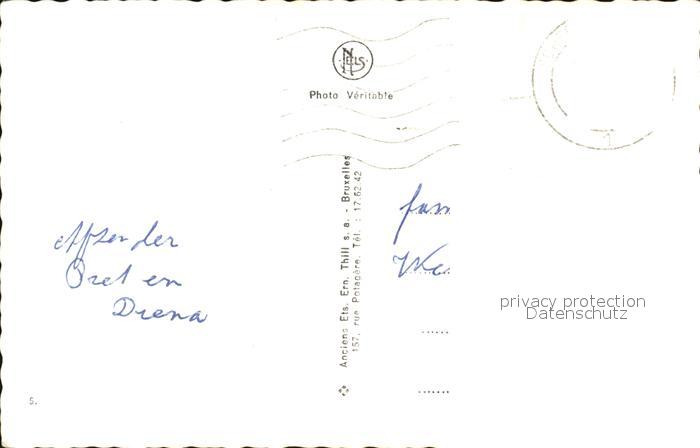 NELS
Photo Véritable
Anciens Ets. Ern. Thill s. a. - Bruxelles
157, rue Potagère. Tél. : 17.62.42
afzender
en
Diena
fam
privacy protection
Datenschutz
1
S.